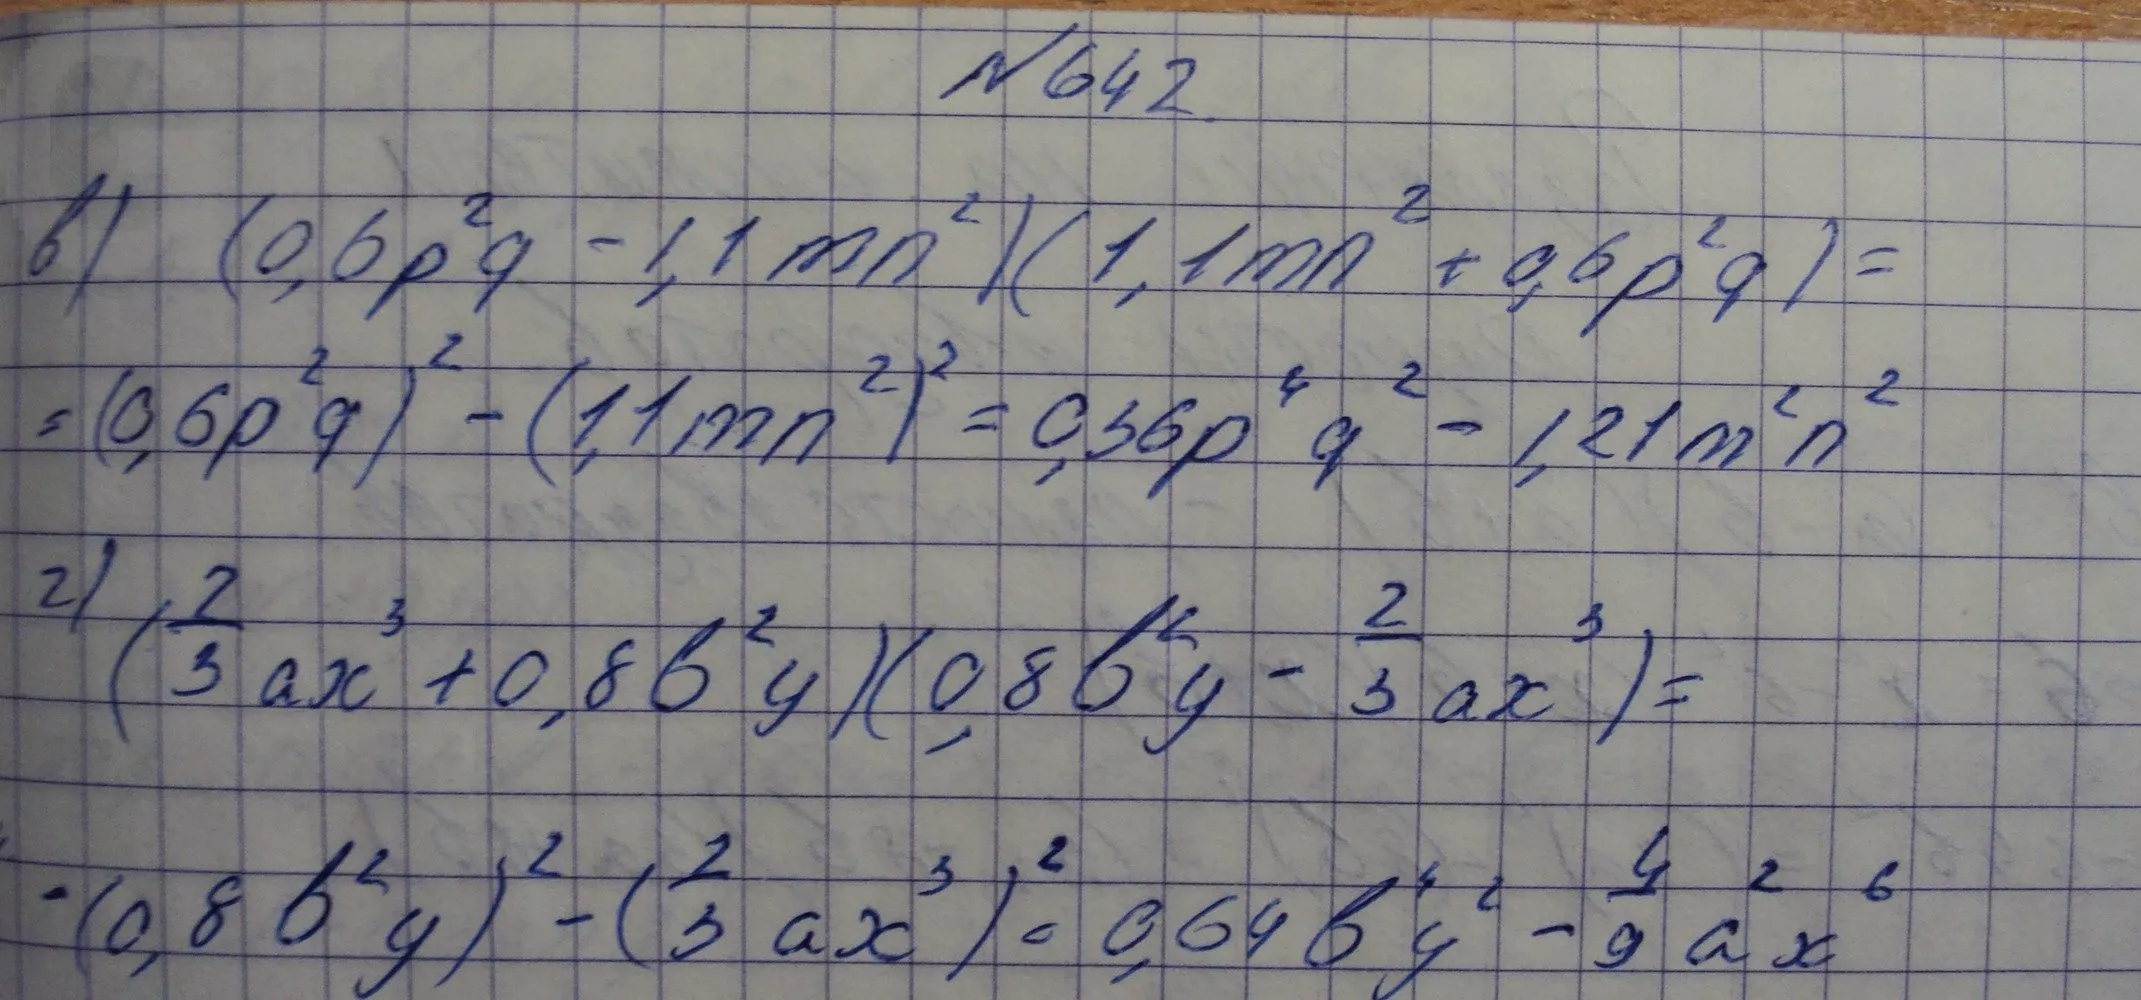 №642
в) (0,6p²q - 1,1mn²)(1,1mn² + 0,6p²q) =
= (0,6p²q)² - (1,1mn²)² = 0,36p⁴q² - 1,21m²n²
г) (2/3 ax³ + 0,8b²y)(0,8b²y - 2/3 ax³) =
= (0,8b²y)² - (2/3 ax³)² = 0,64b⁴y² - 4/9 a²x⁶